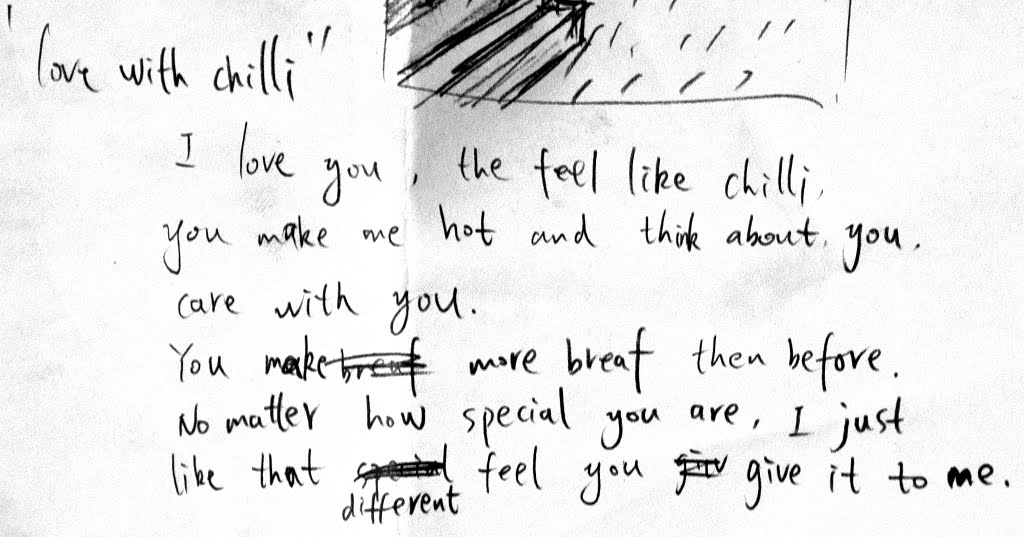 "love with chilli"
I love you, the feel like chilli,
you make me hot and think about you.
care with you.
You make breaf more breaf then before.
No matter how special you are, I just
like that special different feel you giv give it to me.